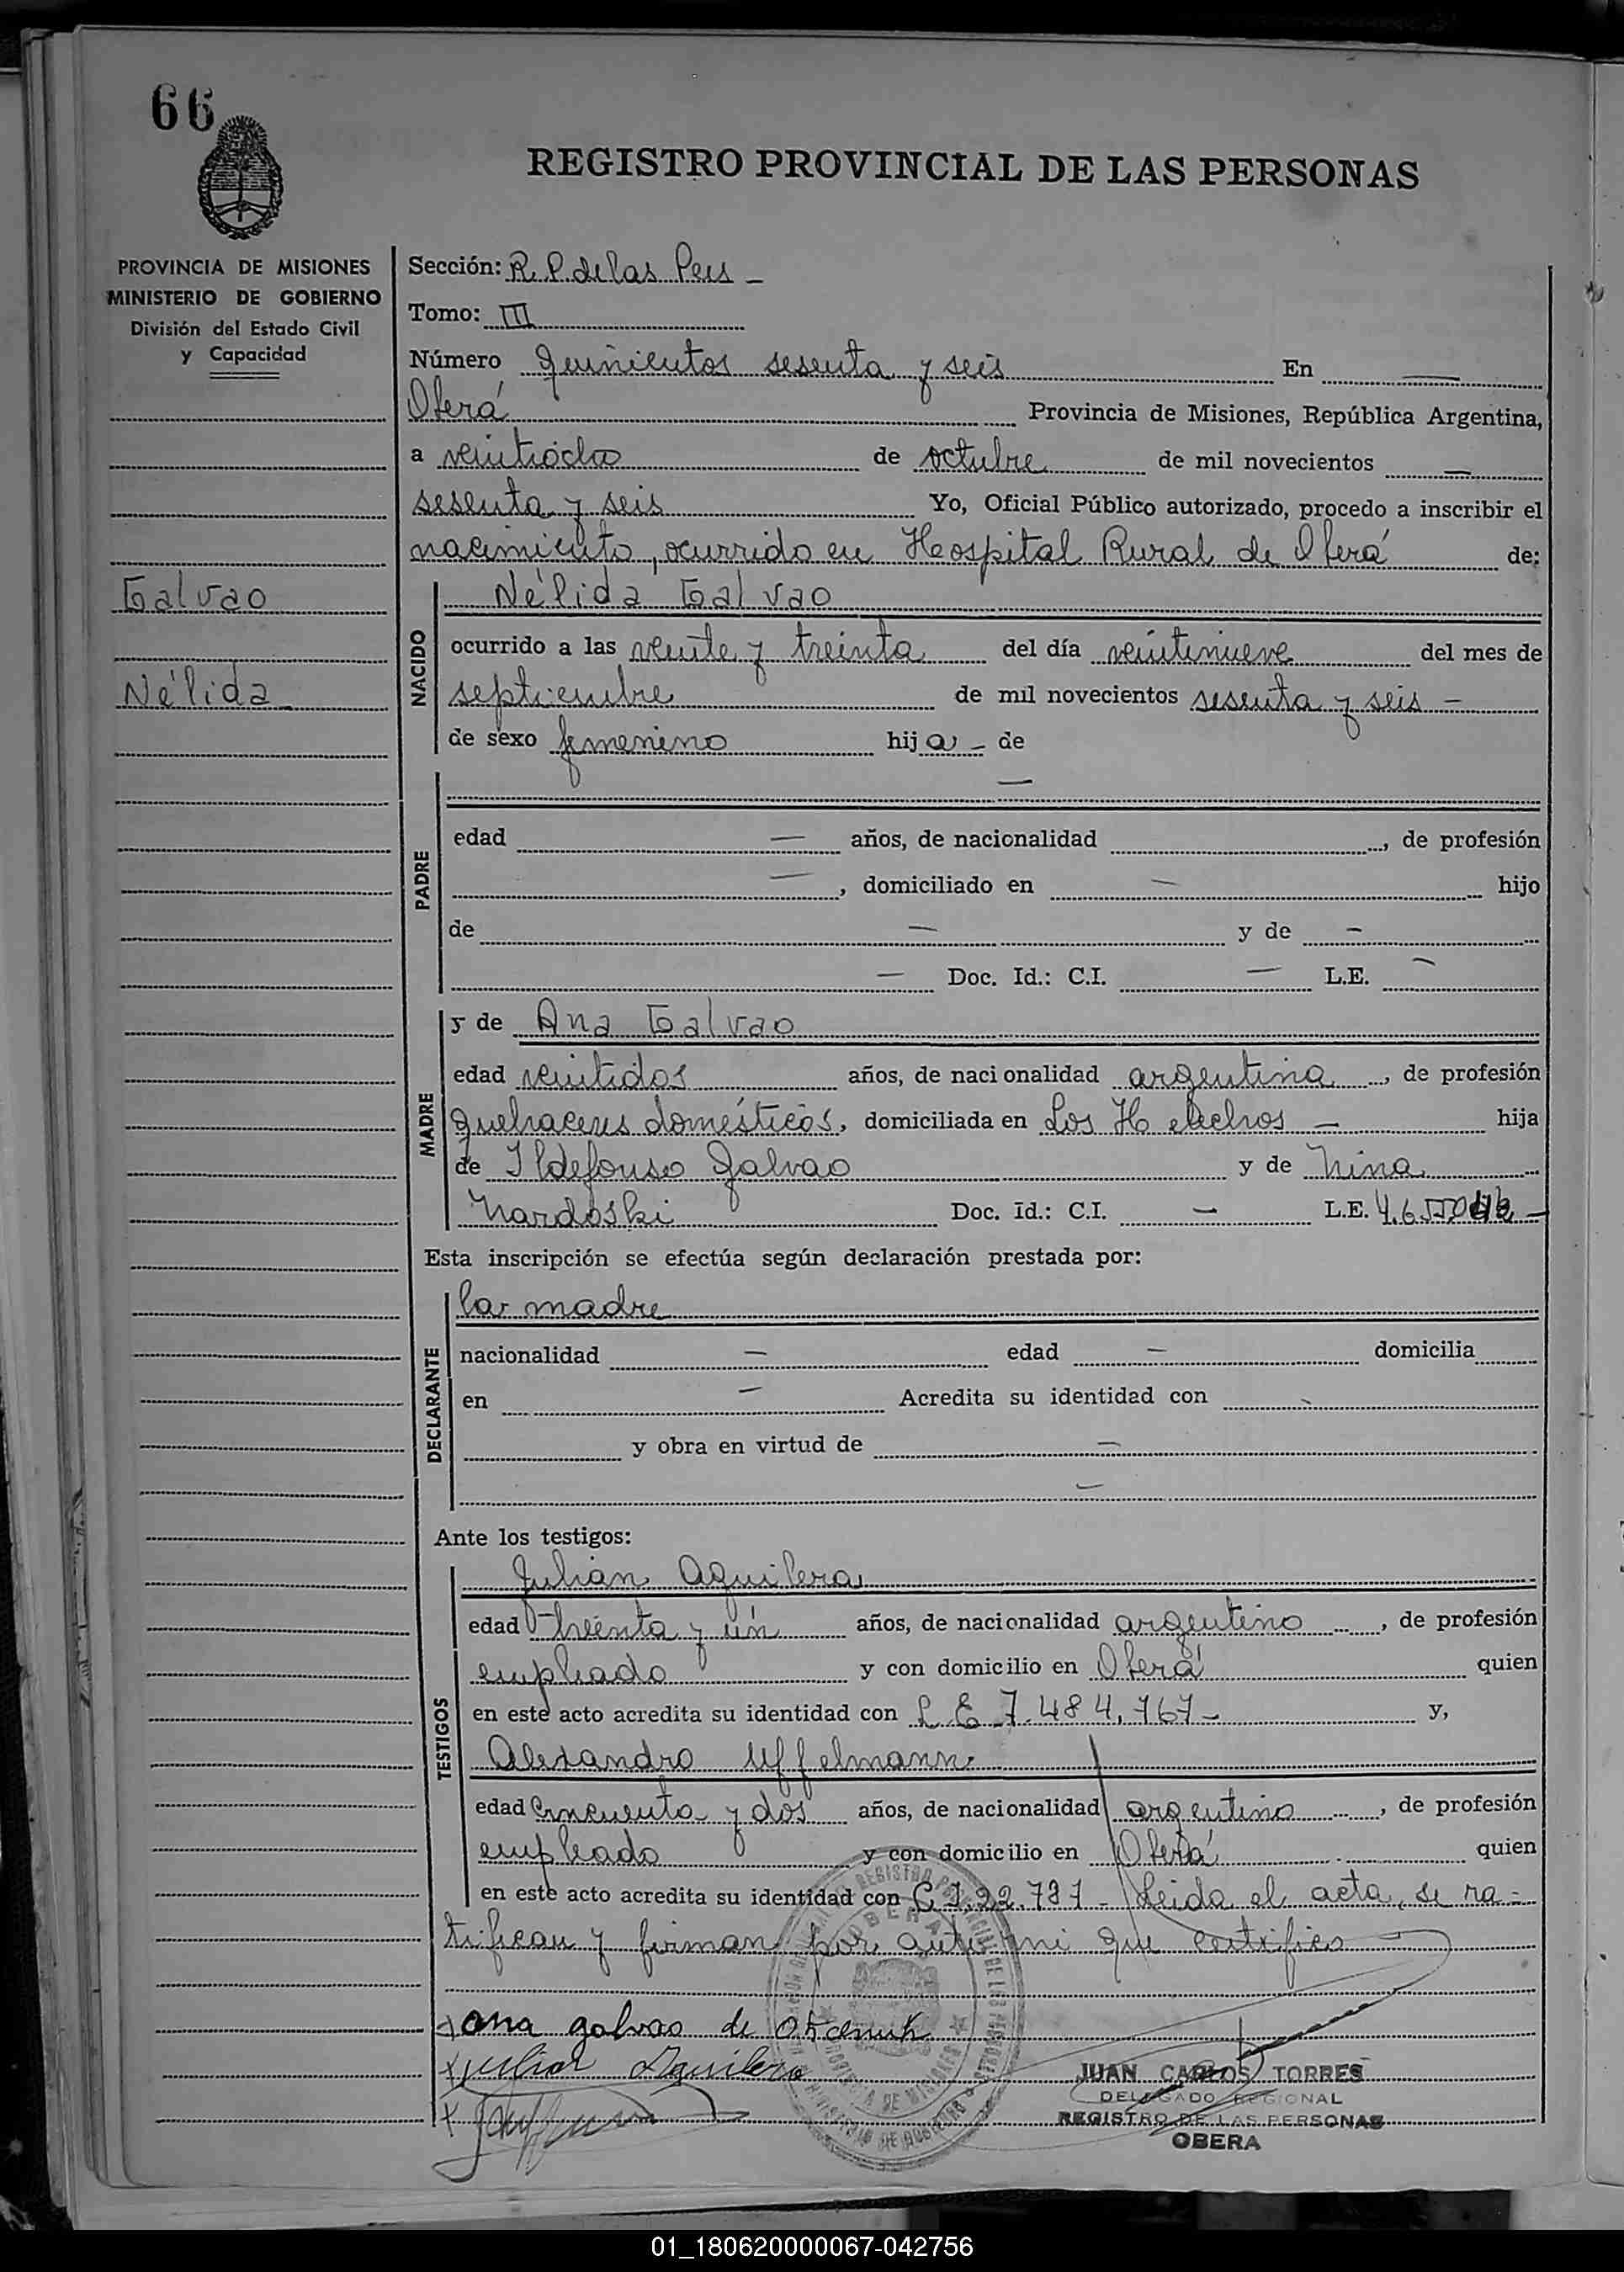 66
REGISTRO PROVINCIAL DE LAS PERSONAS
PROVINCIA DE MISIONES
MINISTERIO DE GOBIERNO
División del Estado Civil
y Capacidad
Galvao
Nélida
Sección: R. P. de las Pers –
Tomo: III
Número quiñientos sesenta y seis En —
Oberá Provincia de Misiones, República Argentina,
a veintiocho de octubre de mil novecientos —
sesenta y seis Yo, Oficial Público autorizado, procedo a inscribir el
nacimiento, ocurrido en Hospital Rural de Oberá de:
NACIDO
Nélida Galvao
ocurrido a las veinte y treinta del día veintinueve del mes de
septiembre de mil novecientos sesenta y seis –
de sexo femenino hija – de
PADRE
—
edad — años, de nacionalidad , de profesión
— , domiciliado en — hijo
de — y de –
— Doc. Id.: C.I. — L.E. –
MADRE
y de Ana Galvao
edad veintidos años, de nacionalidad argentina , de profesión
quehaceres domésticos, domiciliada en Los Helechos – hija
de Ildefonso Galvao y de Nina
Nardoski Doc. Id.: C.I. – L.E. 4.655.0
Esta inscripción se efectúa según declaración prestada por:
DECLARANTE
la madre
nacionalidad — edad — domicilia
en — Acredita su identidad con
y obra en virtud de —
—
Ante los testigos:
TESTIGOS
Julian Aguilera
edad treinta y ún años, de nacionalidad argentino , de profesión
empleado y con domicilio en Oberá quien
en este acto acredita su identidad con L E 7.484.767 – y,
Alexandro Uffelmann
edad cincuenta y dos años, de nacionalidad argentino , de profesión
empleado y con domicilio en Oberá quien
en este acto acredita su identidad con C I, 22.737 – Leida el acta, se ra–
tifican y firman por ante mi que certifico –
x Ana galvao de
x Julian Aguilera
x
JUAN CARLOS TORRES
DELEGADO REGIONAL
REGISTRO DE LAS PERSONAS
OBERA
01_180620000067-042756